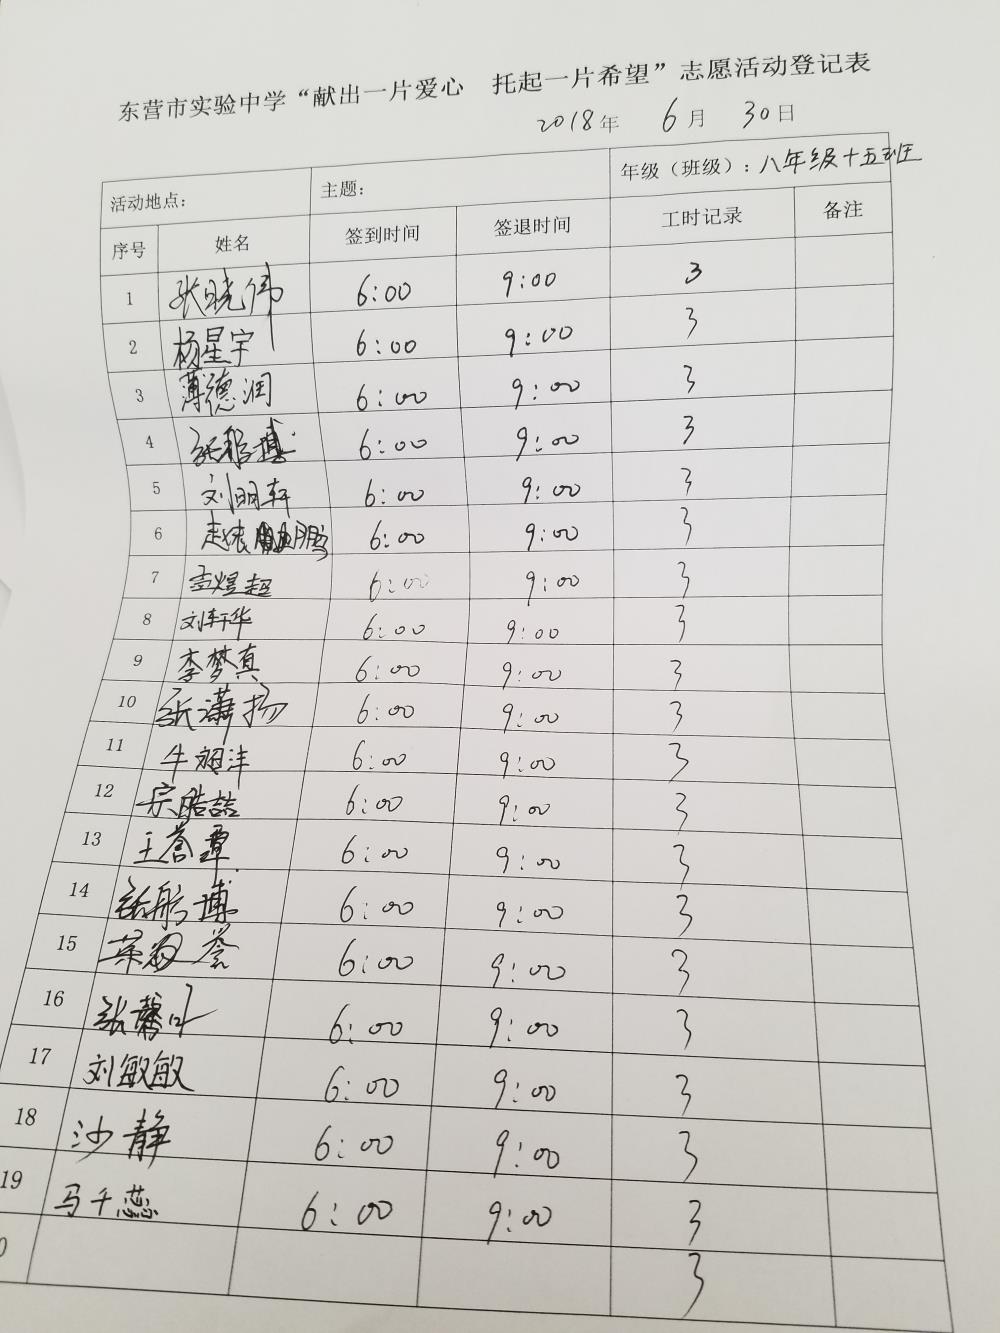 东营市实验中学“献出一片爱心 托起一片希望”志愿活动登记表
2018年 6月 30日
活动地点： 主题： 年级（班级）：八年级十五班
序号 姓名 签到时间 签退时间 工时记录 备注
1 张晓伟 6:00 9:00 3
2 杨星宇 6:00 9:00 3
3 薄德润 6:00 9:00 3
4 6:00 9:00 3
5 刘明轩 6:00 9:00 3
6 6:00 9:00 3
7 孟煜超 6:00 9:00 3
8 刘轩华 6:00 9:00 3
9 李梦真 6:00 9:00 3
10 张潇扬 6:00 9:00 3
11 6:00 9:00 3
12 宗皓喆 6:00 9:00 3
13 6:00 9:00 3
14 6:00 9:00 3
15 6:00 9:00 3
16 6:00 9:00 3
17 刘敏敏 6:00 9:00 3
18 沙静 6:00 9:00 3
19 马千蕊 6:00 9:00 3
0 3